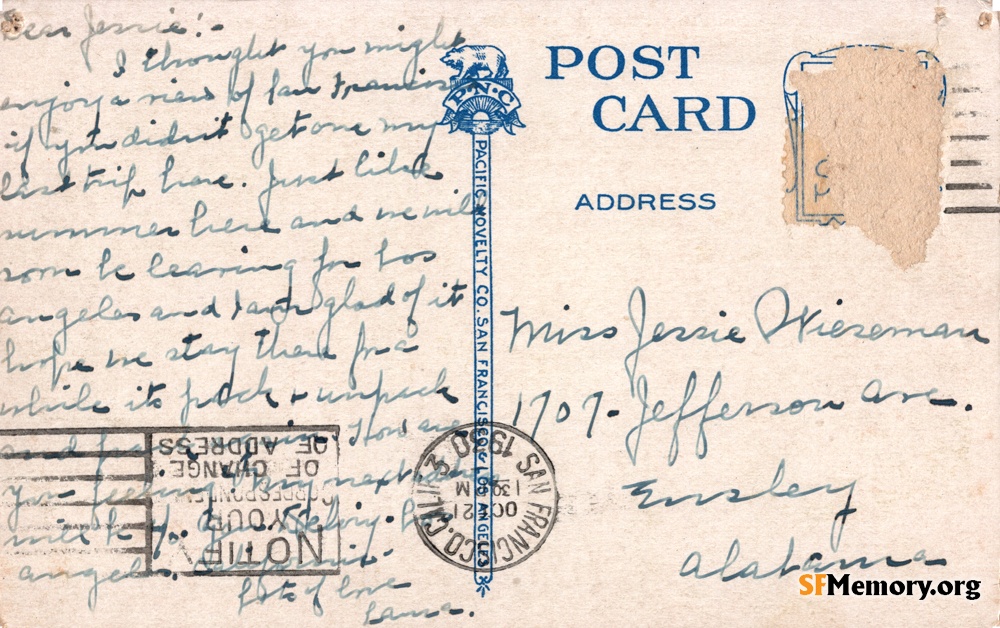 Dear Jessie:-
I thought you might
enjoy a view of San Francisco
if you didn't get one my
last trip here. Just like
summer here and we will
soon be leaving for Los
angeles and I am glad of it
hope we stay there for a
while its pack & unpack
and How are
you feeling? My next
will be
angeles,
Lots of love
P.N.C
PACIFIC NOVELTY CO. SAN FRANCISCO & LOS ANGELES
POST
CARD
ADDRESS
Miss Jessie Wieseman
1707- Jefferson ave.
Ensley
alabama
SAN FRANCISCO, CALIF. 3
OCT 21
130 PM
1930
NOTIFY
YOUR
CORRESPONDENTS
OF CHANGE
OF ADDRESS
SFMemory.org